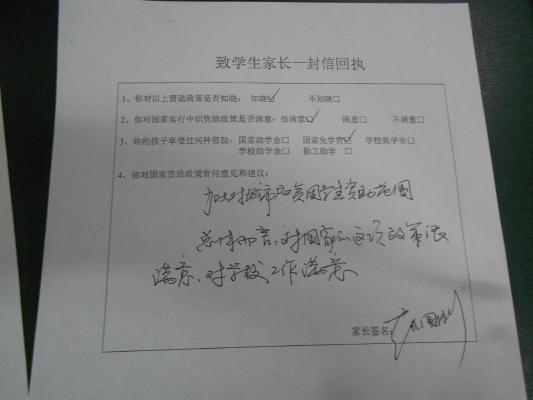 致学生家长一封信回执
1、你对以上资助政策是否知晓： 知晓☑ 不知晓□
2、你对国家实行中职资助政策是否满意：很满意☑ 满意□ 不满意□
3、你的孩子享受过何种资助：国家助学金□ 国家免学费☑ 学校奖学金□
学校助学金□ 勤工助学 □
4、你对国家资助政策有何意见和建议：
加大对城市贫困学生资助范围
总体而言，对国家的这项政策很
满意、对学校工作满意
家长签名：